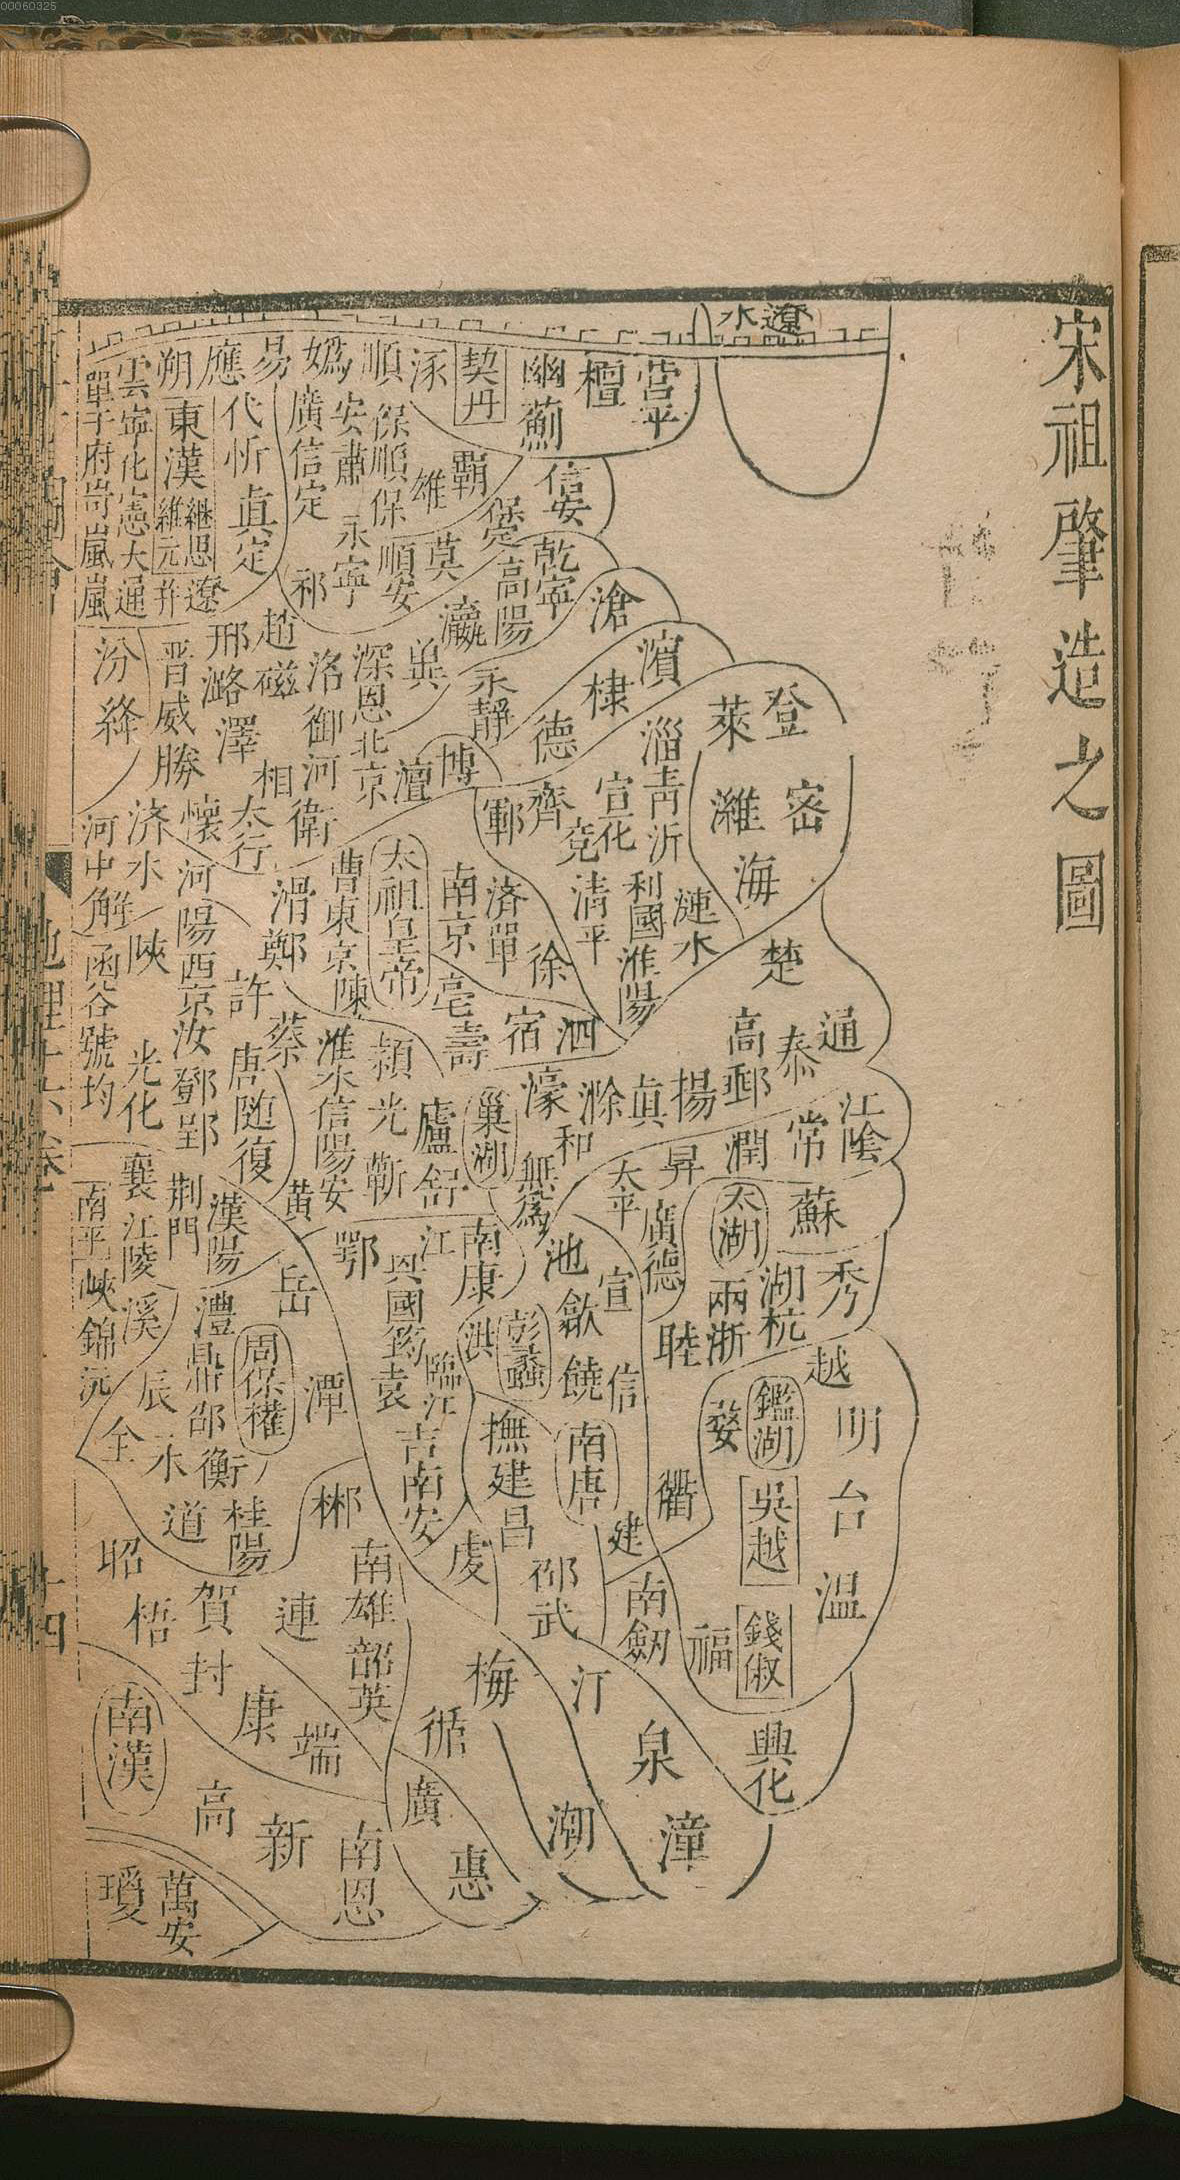 00060325
宋祖肇造之圖
遼水
營平
檀
幽薊
契丹
涿
順
媯
易
應
朔
雲寧化憲大通
單于府岢嵐嵐
東漢
繼恩
繼元
并
遼
代忻真定
廣信定
安肅
永寧
保順保
順安
雄
霸
莫
信安
保定
乾寧
高陽
瀛
祁
滄
濱
棣
德
永靜
冀
深恩北京
澶
博
洺御河
趙
磁
邢
潞
澤
相
衛
晋威勝
汾
絳
懷
太行
済水
河中
解
陝
河陽西京
汝鄧郢
函谷號均
光化
滑
鄭
許
蔡
唐隨復
曹東京陳
太祖皇帝
南京
亳
壽
済單
徐
宿
泗
鄆
齊
兗
宣化
清平
淄青沂
利國
淮陽
漣水
登
萊
密
濰
海
楚
通
泰
高郵
揚
真
滁
濠
和
無爲
巢湖
廬舒
潁光蘄
淮水信陽安
黄
襄
江陵
荆門
漢陽
南平
峽錦沅
溪
辰
澧鼎邵衡
周保權
岳
潭
全
永
道
桂陽
郴
鄂
興國筠袁
江
南康
洪
彭蠡
臨江
吉南安
撫建昌
虔
池
歙
饒
宣
信
南唐
建
邵武
南劒
汀
太平
廣德
昇
潤
常
江陰
太湖
蘇
秀
湖杭
兩浙
睦
越
明
台
温
婺
衢
鑑湖
吳越
錢俶
福
興化
泉
漳
潮
梅
循
廣
惠
南雄韶英
連
賀
封
康
端
昭
梧
南漢
高
新
南恩
瓊
萬安
地理十六卷
十四